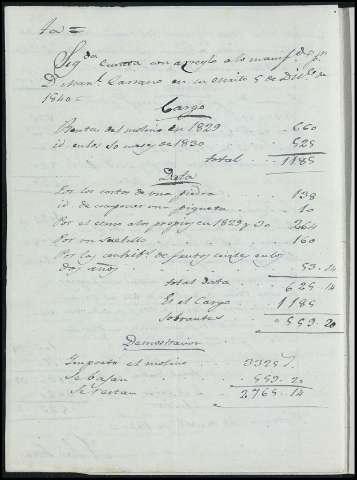 Seg.da cuenta con arreglo a lo manif.do p.r
D. Man.l Cassano en su escrito 5 de Dic.bre
1840=
Cargo
Rentas del molino en 1829 . . 660
id. en los 10 meses de 1830 . . 525
total . . 1185
Data
Por los costos de una piedra . . 138
id. de componer una piqueta . . 10
Por el censo a los propios en 1829 y 30 . . 264
Por un . . 160
Por las contrib.s de frutos civiles en los
dos años . . 53.14
total data . . 625.14
Es el Cargo . . 1185
Sobrantes . . 559.20
Demostracion
Importó el molino . . 3325
Se bajan . . 559.20
Se restan . . 2765.14